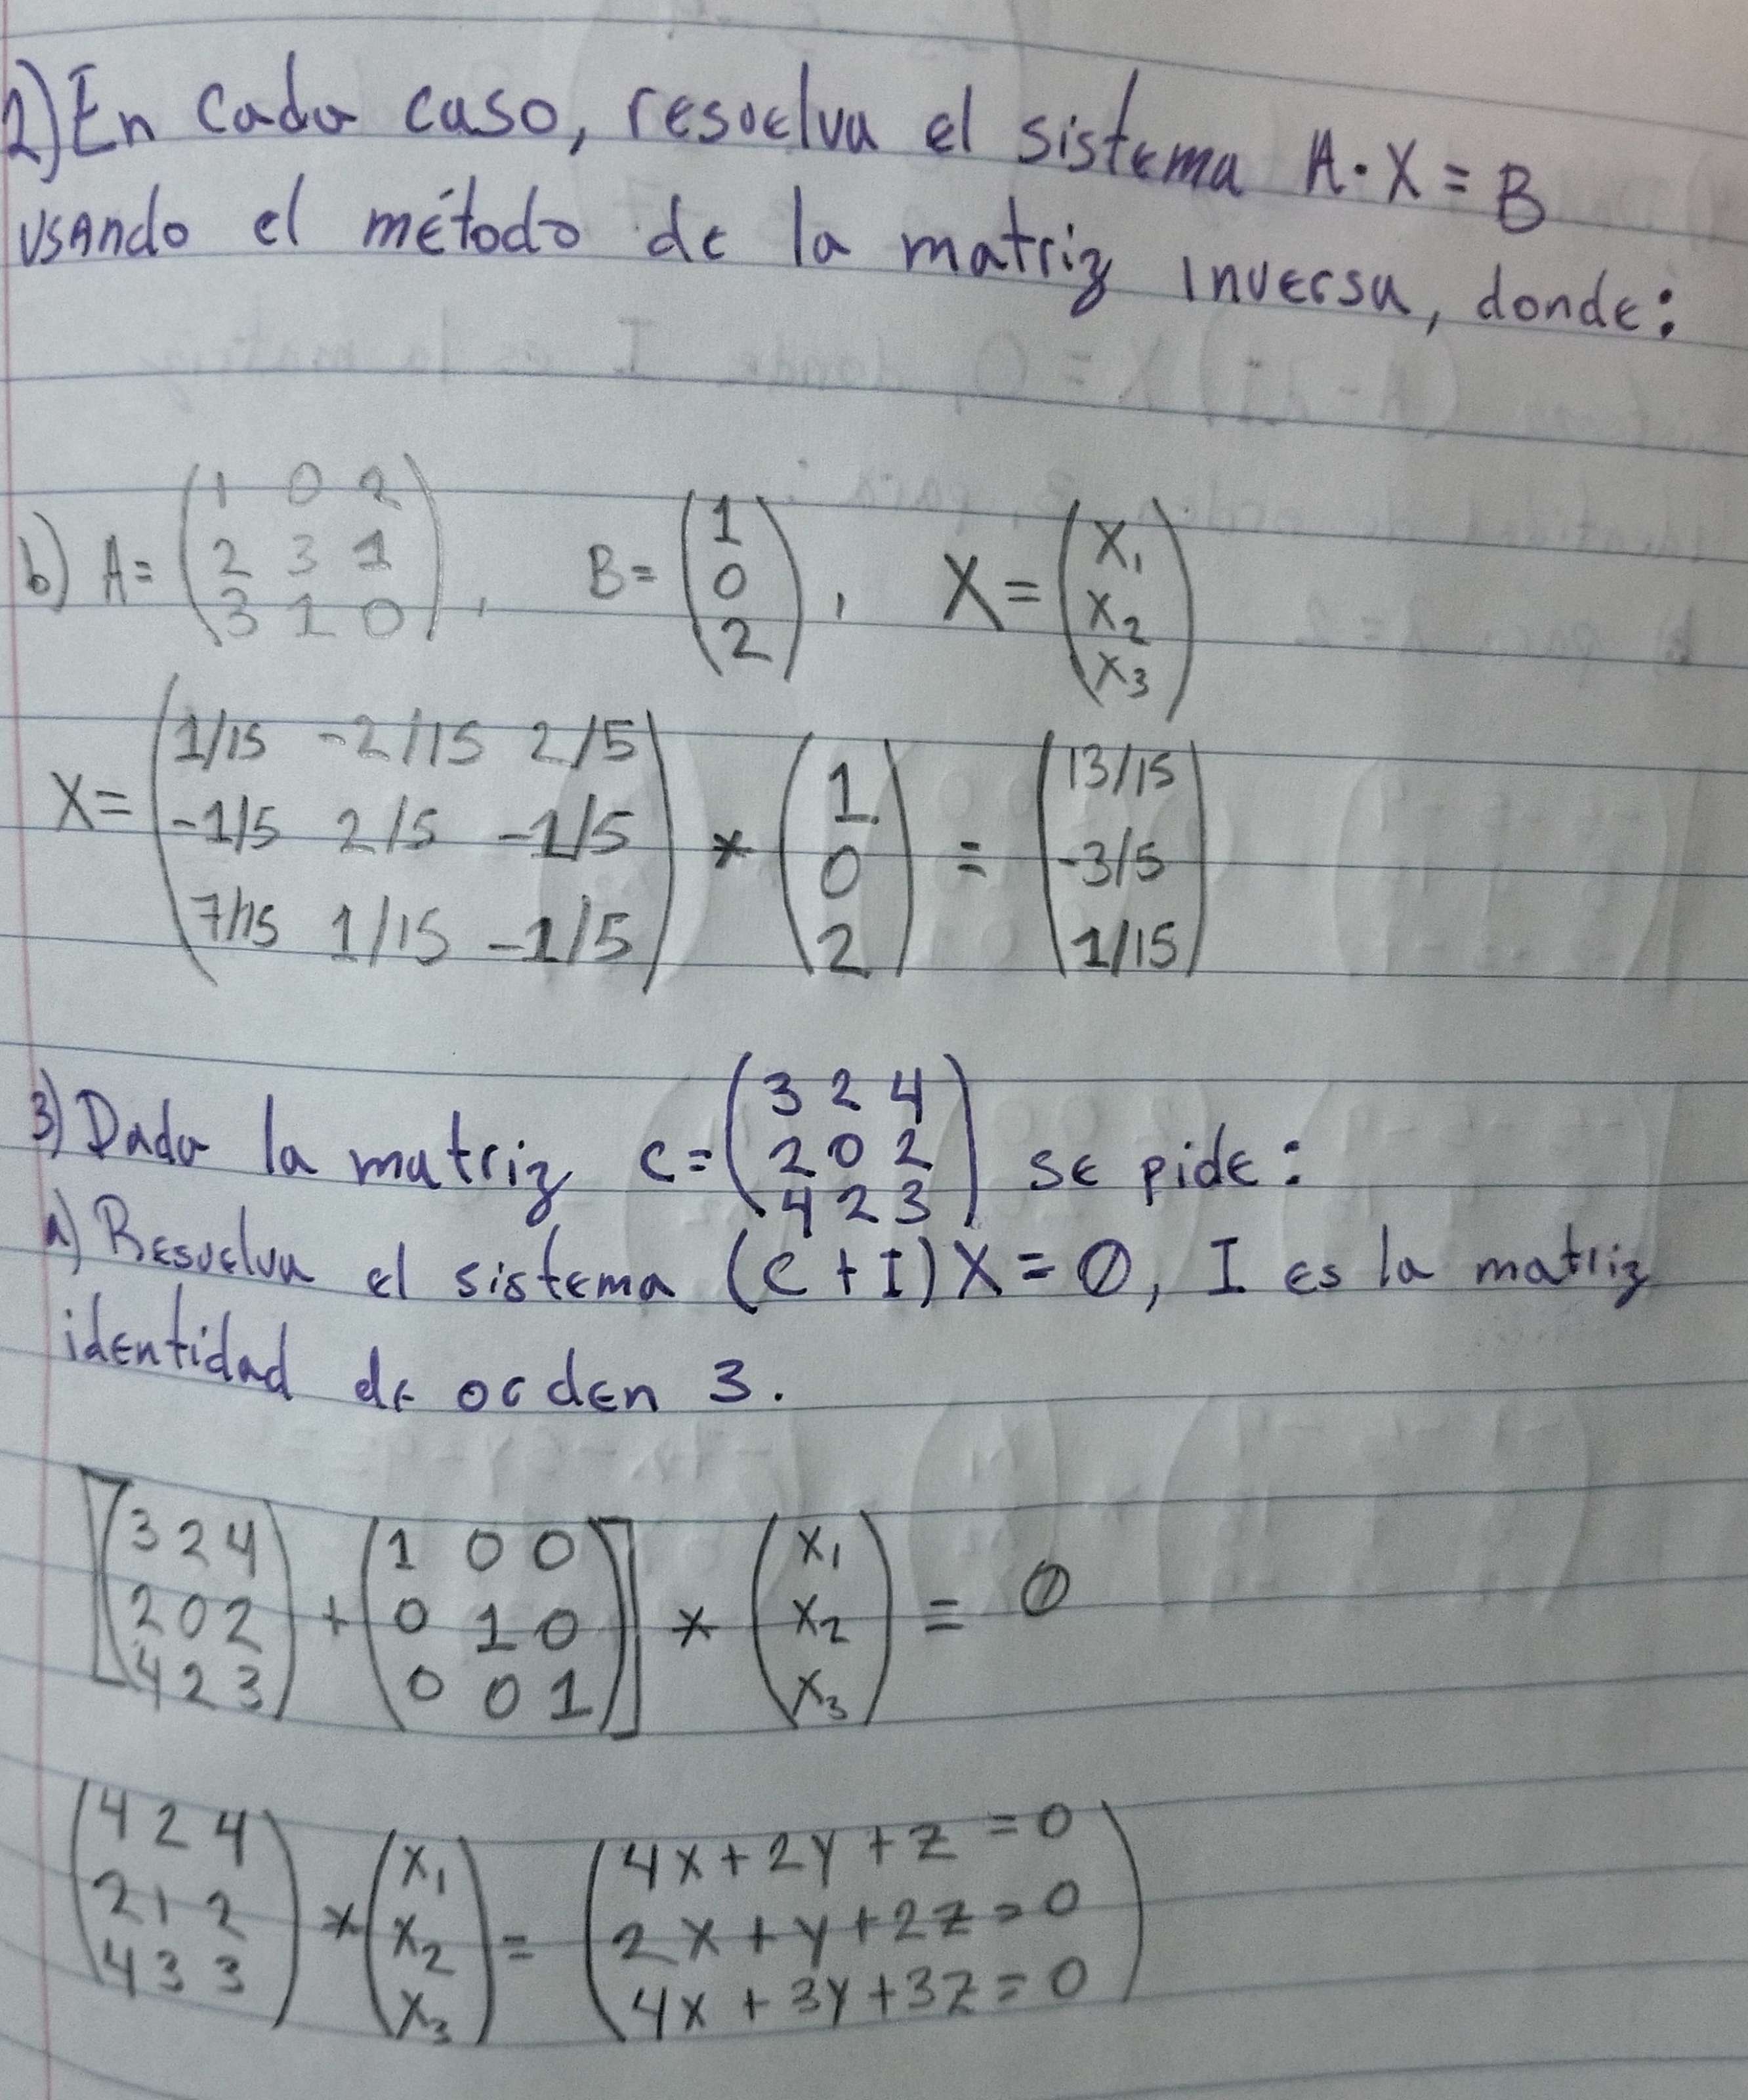 2) En cada caso, resuelva el sistema A·X = B
usando el método de la matriz inversa, donde:
b) A= (1 0 2 / 2 3 1 / 3 1 0), B= (1 / 0 / 2), X= (x₁ / x₂ / x₃)
X= (1/15 -2/15 2/5 / -1/5 2/5 -1/5 / 7/15 1/15 -1/5) * (1 / 0 / 2) = (13/15 / -3/5 / 1/15)
3) Dada la matriz C= (3 2 4 / 2 0 2 / 4 2 3) se pide:
a) Resuelva el sistema (C + I) X = 0, I es la matriz
identidad de orden 3.
[(3 2 4 / 2 0 2 / 4 2 3) + (1 0 0 / 0 1 0 / 0 0 1)] * (x₁ / x₂ / x₃) = 0
(4 2 4 / 2 1 2 / 4 3 3) * (x₁ / x₂ / x₃) = (4x + 2y + z = 0 / 2x + y + 2z = 0 / 4x + 3y + 3z = 0)